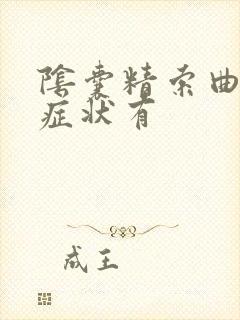 陰囊精索曲
症状有
成王